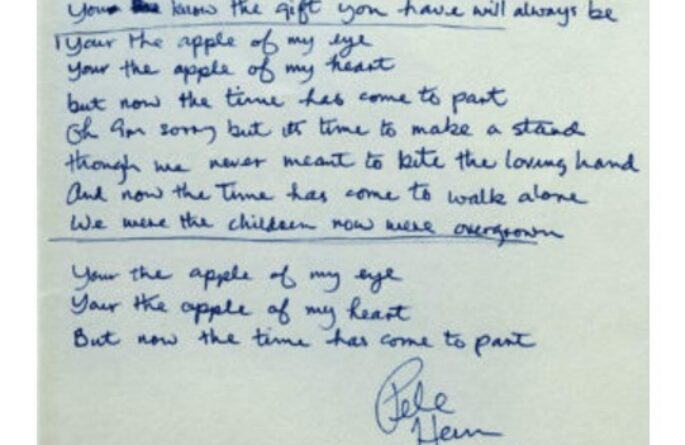 You know the gift you have will always be
Your the apple of my eye
Your the apple of my heart
but now the time has come to part
Oh Im sorry but its time to make a stand
though we never meant to bite the loving hand
And now the time has come to walk alone
We were the children now were overgrown
Your the apple of my eye
Your the apple of my heart
But now the time has come to part
Pete
Ham